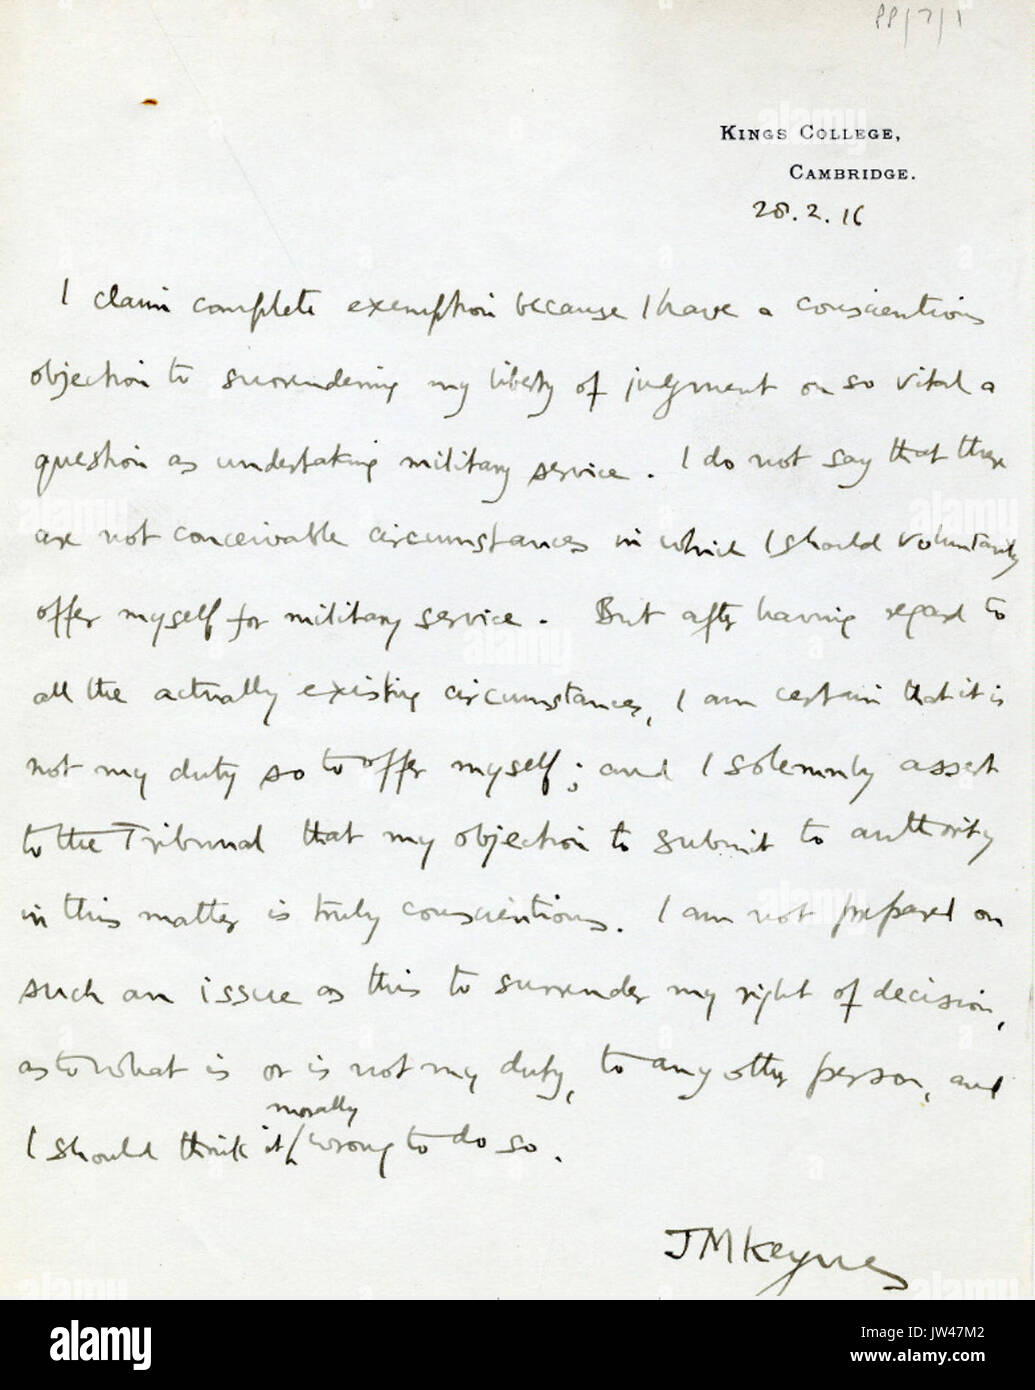 PP/7/1
KINGS COLLEGE,
CAMBRIDGE.
28.2.16
I claim complete exemption because I have a conscientious
objection to surrendering my liberty of judgment on so vital a
question as undertaking military service. I do not say that there
are not conceivable circumstances in which I should voluntarily
offer myself for military service. But after having regard to
all the actually existing circumstances, I am certain that it is
not my duty so to offer myself; and I solemnly assert
to the Tribunal that my objection to submit to authority
in this matter is truly conscientious. I am not prepared on
such an issue as this to surrender my right of decision,
as to what is or is not my duty, to any other person, and
morally
I should think it wrong to do so.
JMKeynes
alamy
Image ID: JW47M2
www.alamy.com